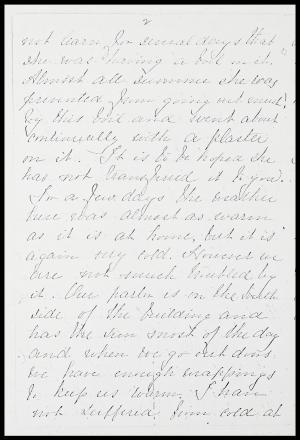 2
not learn for several days that
she was having a boil on it.
Almost all summer she was
prevented from going out much
by this boil and went about
continually with a plaster
on it. It is to be hoped she
has not transferred it to you.
For a few days the weather
here was almost as warm
as it is at home, but it is
again very cold. However we
are not much troubled by
it. Our parlor is on the south
side of the building and
has the sun most of the day
and when we go out doors
we have enough wrappings
to keep us warm. I have
not suffered from cold at